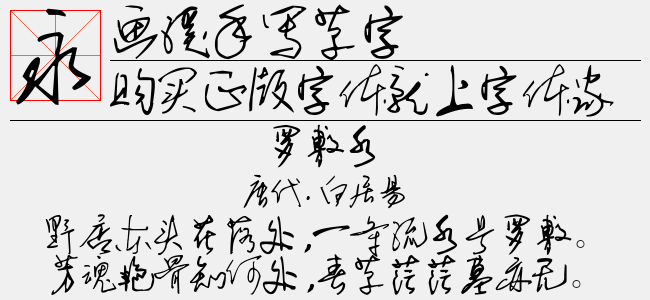 永
画手写草字
购买正版字体就上字体家
罗敷水
唐代.白居易
野店东头花落处,一条流水号罗敷。
芳魂艳骨知何处,春草茫茫墓亦无。